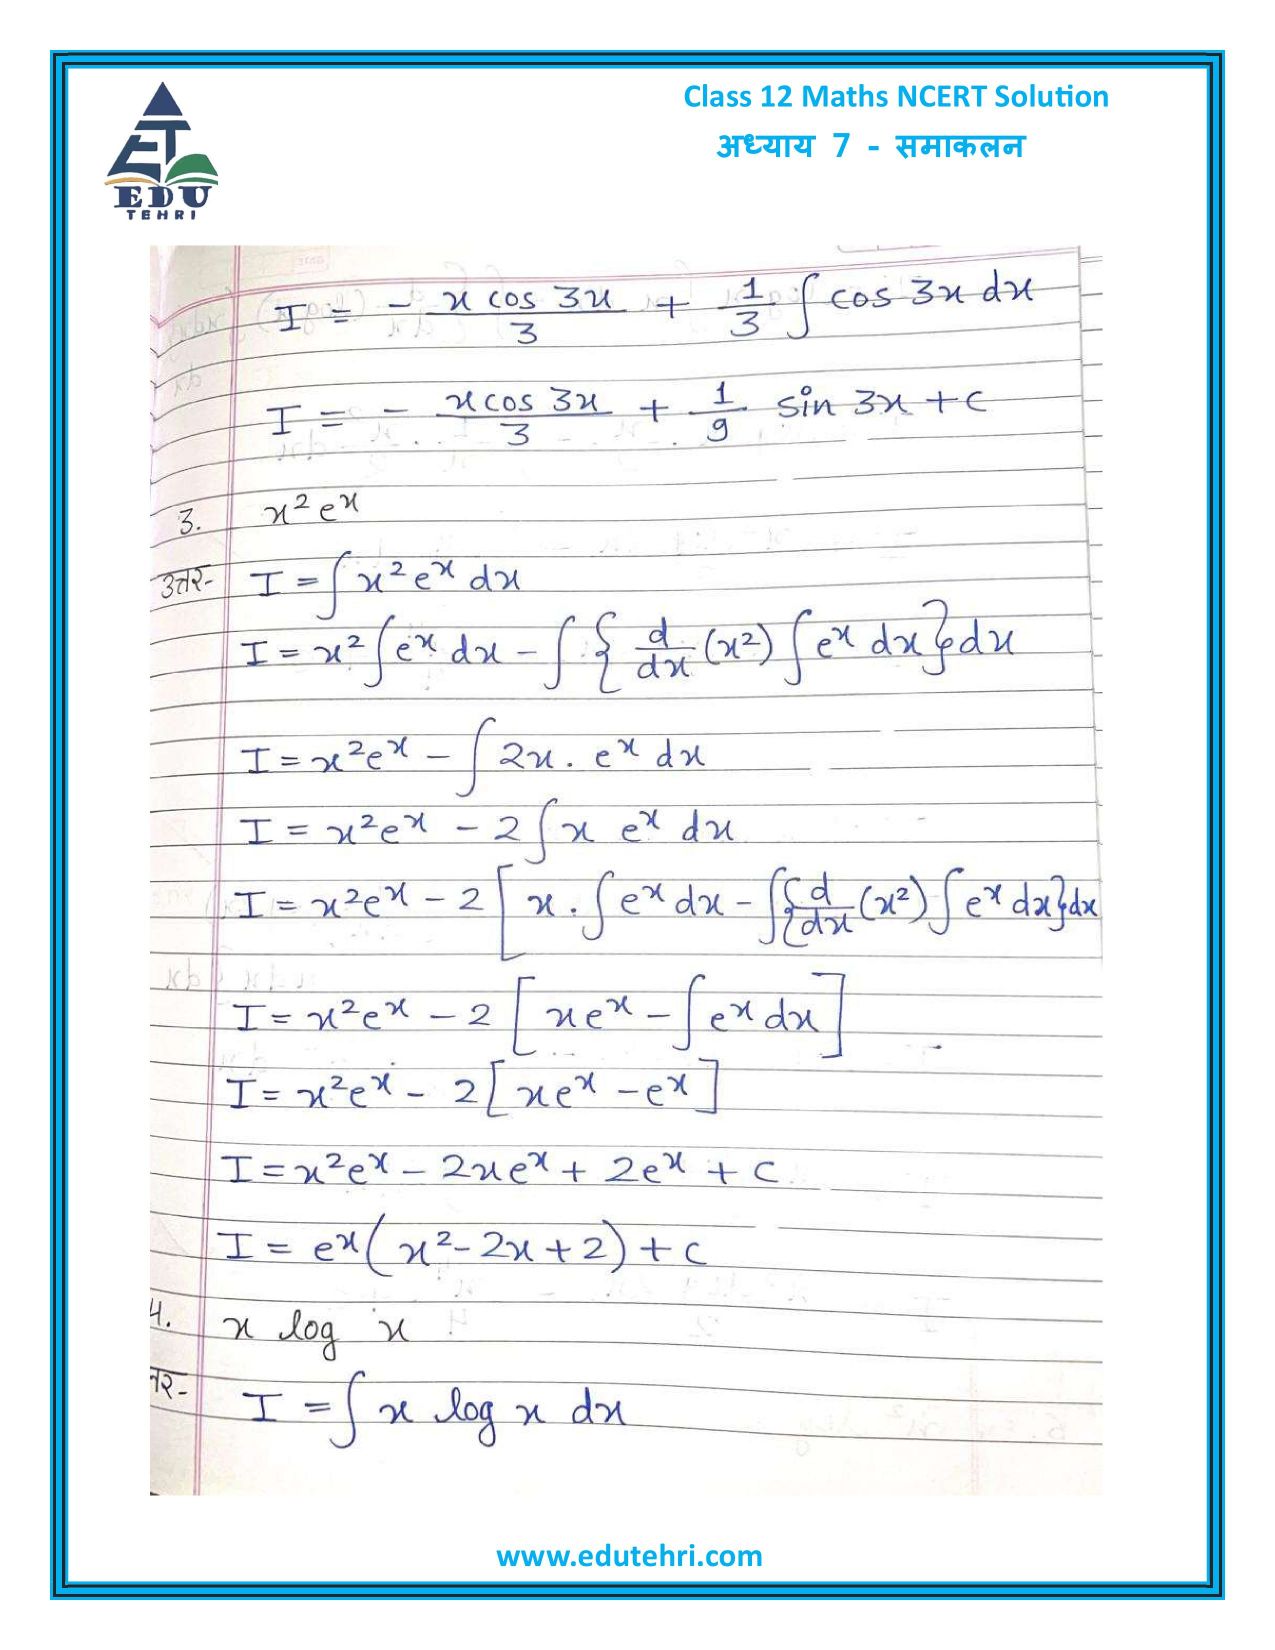 Class 12 Maths NCERT Solution
अध्याय 7 - समाकलन
EDU
TEHRI
I = - x cos 3x / 3 + 1/3 ∫ cos 3x dx
I = - x cos 3x / 3 + 1/9 sin 3x + c
3. x² eˣ
उत्तर- I = ∫ x² eˣ dx
I = x² ∫ eˣ dx - ∫ { d/dx (x²) ∫ eˣ dx } dx
I = x² eˣ - ∫ 2x . eˣ dx
I = x² eˣ - 2 ∫ x eˣ dx
I = x² eˣ - 2 [ x . ∫ eˣ dx - ∫ { d/dx (x²) ∫ eˣ dx } dx
I = x² eˣ - 2 [ x eˣ - ∫ eˣ dx ]
I = x² eˣ - 2 [ x eˣ - eˣ ]
I = x² eˣ - 2x eˣ + 2eˣ + c
I = eˣ ( x² - 2x + 2 ) + c
4. x log x
त्तर- I = ∫ x log x dx
www.edutehri.com